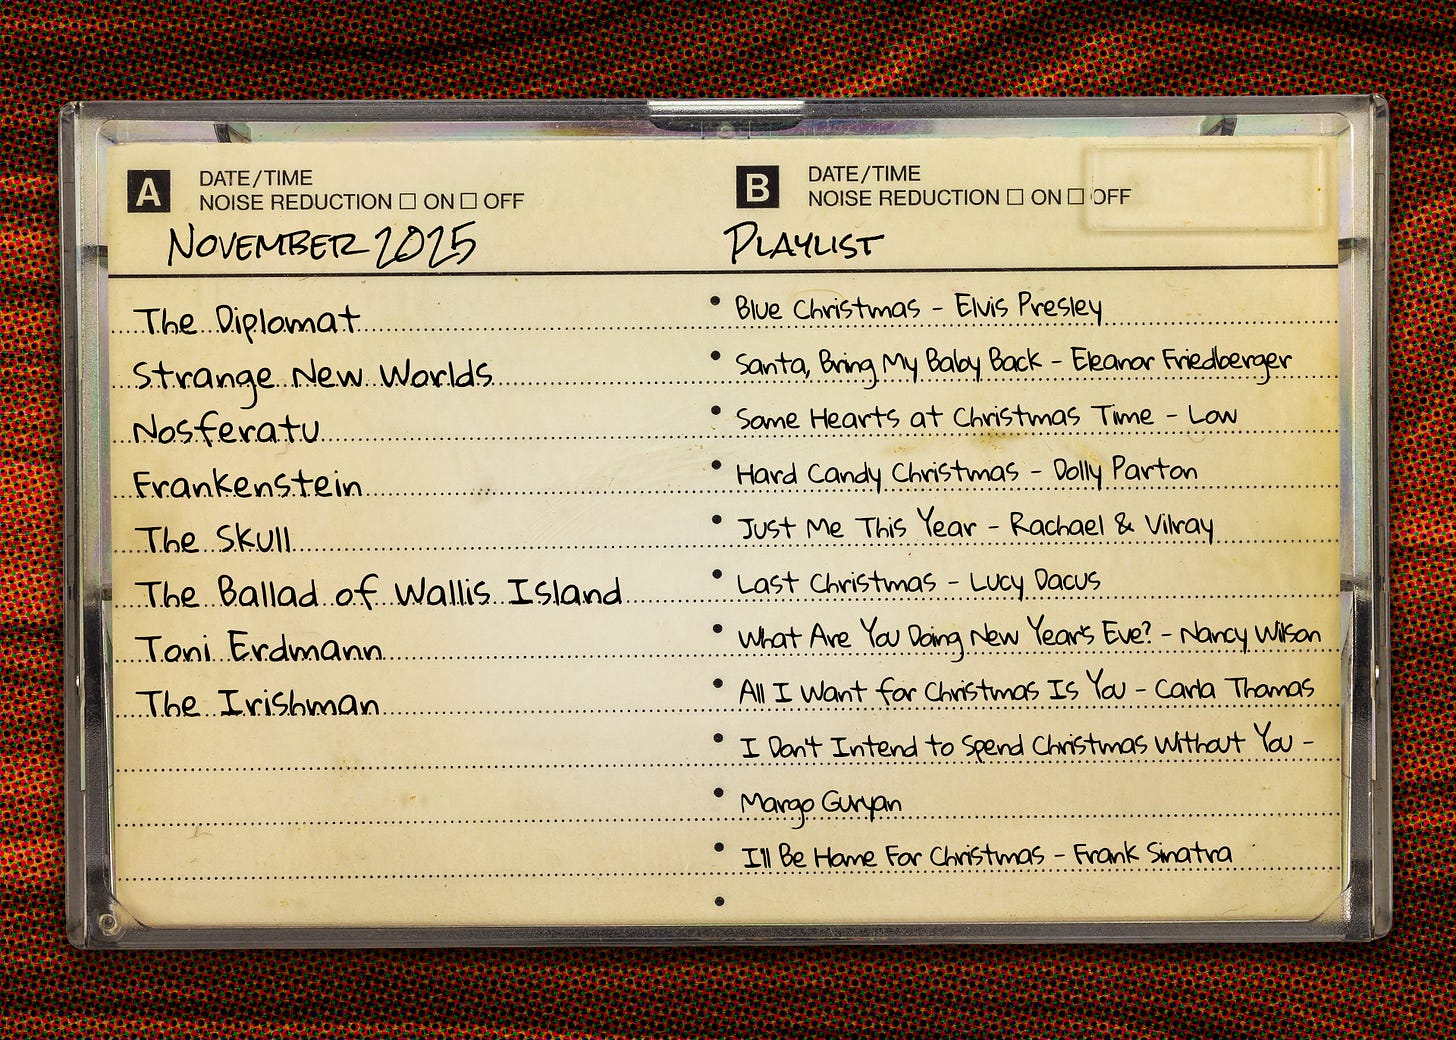 A
DATE/TIME
NOISE REDUCTION ☐ ON ☐ OFF
NOVEMBER 2025
The Diplomat
Strange New Worlds
Nosferatu
Frankenstein
The Skull
The Ballad of Wallis Island
Toni Erdmann
The Irishman
B
DATE/TIME
NOISE REDUCTION ☐ ON ☐ OFF
PLAYLIST
• Blue Christmas - Elvis Presley
• Santa, Bring My Baby Back - Eleanor Friedberger
• Some Hearts at Christmas Time - Low
• Hard Candy Christmas - Dolly Parton
• Just Me This Year - Rachael & Vilray
• Last Christmas - Lucy Dacus
• What Are You Doing New Year's Eve? - Nancy Wilson
• All I Want for Christmas Is You - Carla Thomas
• I Don't Intend to Spend Christmas Without You -
• Margo Guryan
• I'll Be Home For Christmas - Frank Sinatra
•